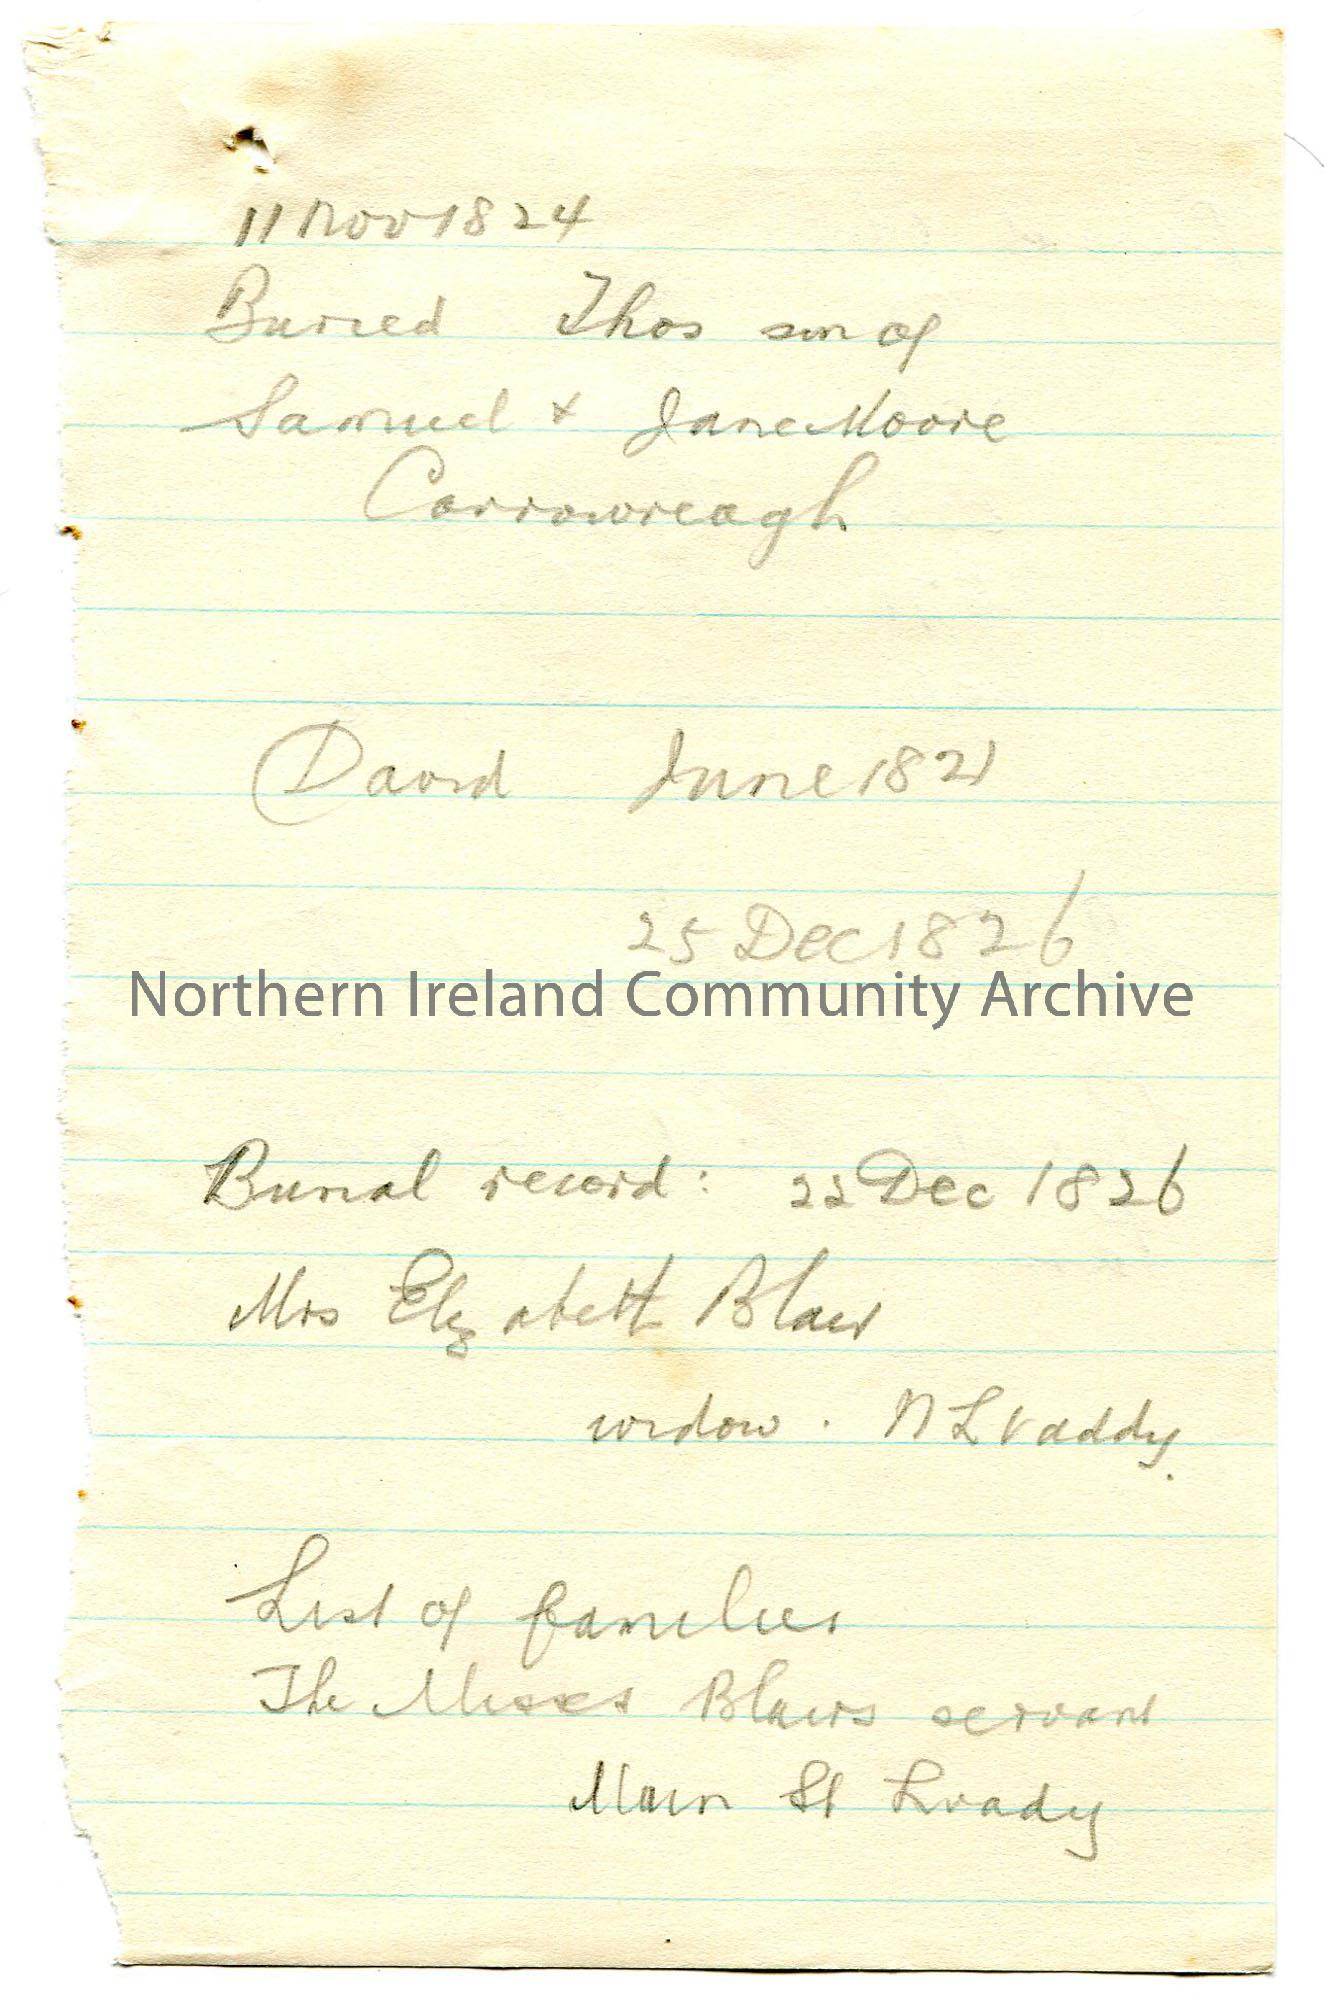 11 Nov 1824
Buried Thos son of
Samuel + Jane Moore
Carrowreagh
David June 1821
25 Dec 1826
Northern Ireland Community Archive
Burial record: 22 Dec 1826
Mrs Elizabeth Blair
widow. N L Vaddy.
List of families
The Misses Blairs servant
Main St Lvady